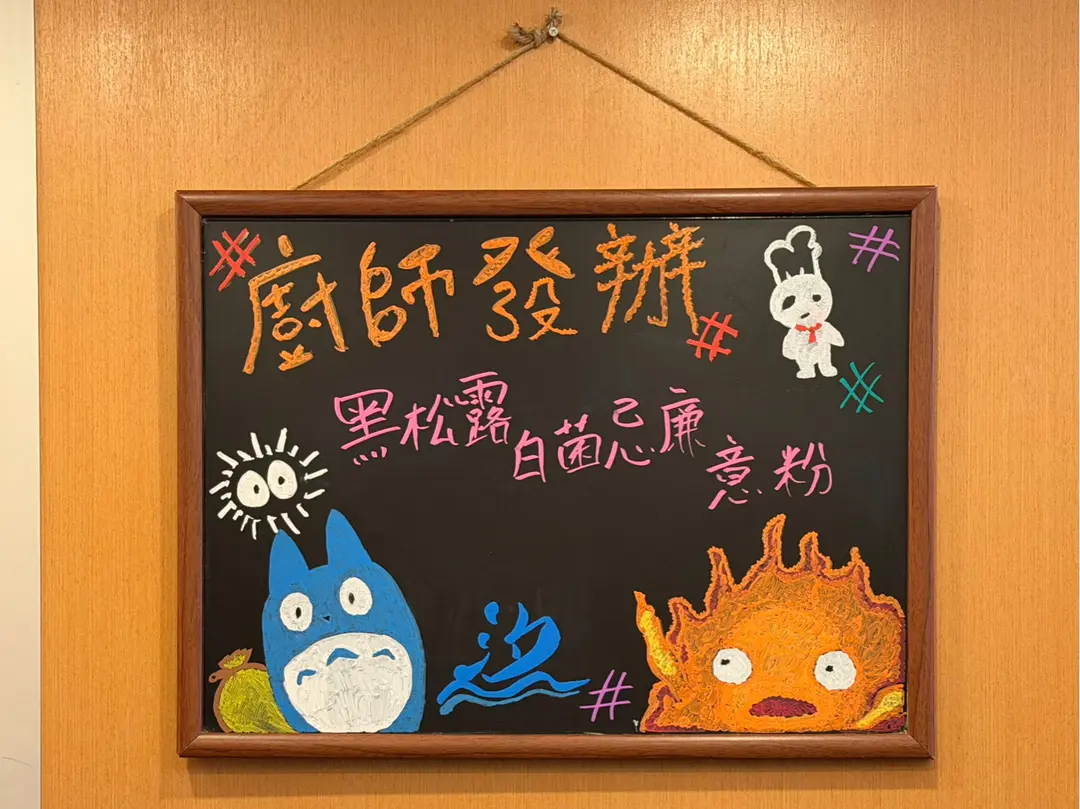 廚師發辦
黑松露白菌忌廉意粉